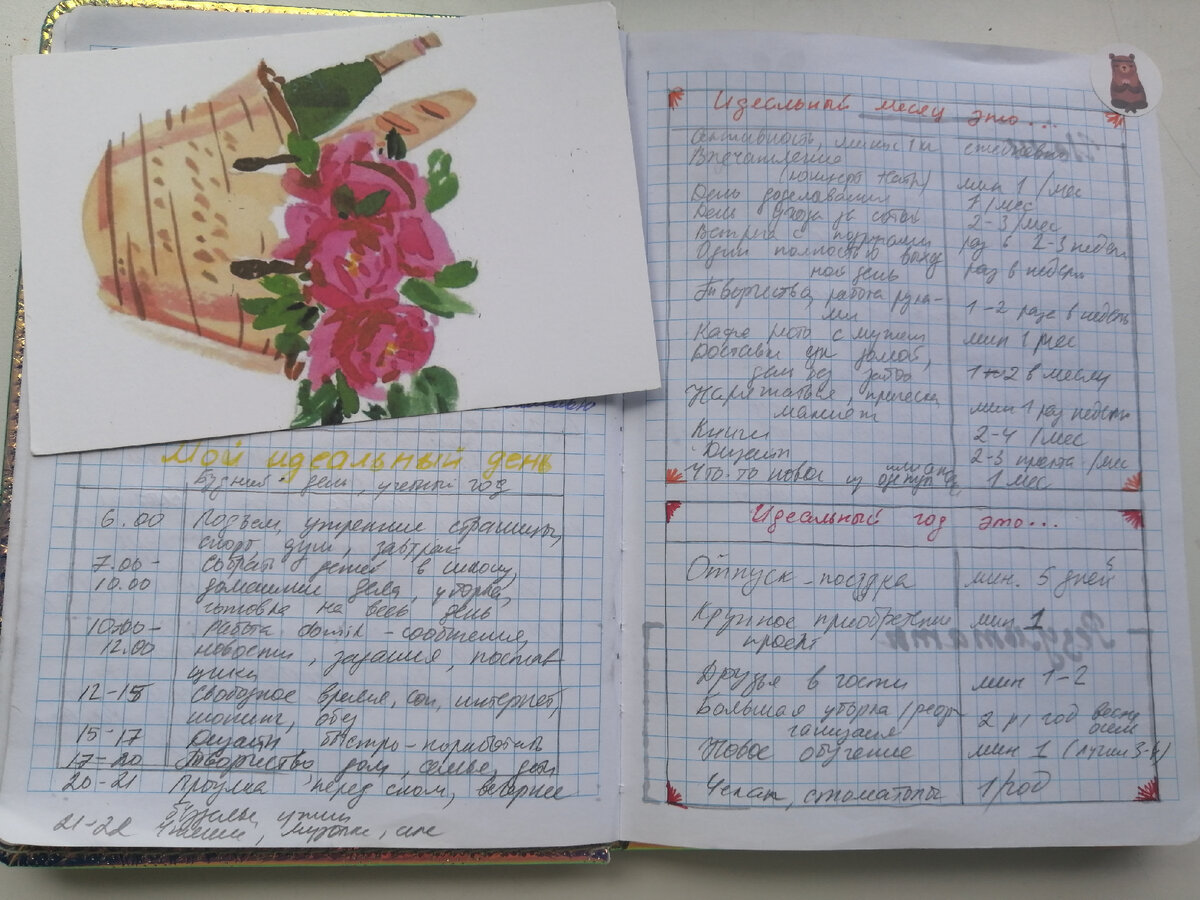 Мой идеальный день
Будний день, учебный год
6.00 Подъем, утренние страницы,
спорт, душ, завтрак
7.00- собрать детей в школу,
10.00 домашние дела, уборка,
готовка на весь день
10:00- работа domik - сообщения,
12.00 новости, задания, постав
щики
12-15 Свободное время, сон, интернет,
шопинг, обед
15-17 Дизайн быстро-поработать
17-20 Творчество дом, семья, дети
20-21 Прогулка перед сном, вечерние
ужин
21-22 Чтение,
Идеальный месяц это...
Активность, мин 1 ч ежедневно
Впечатление
мин 1/мес
День доделывания 1/мес
День ухода за собой 2-3/мес
Встреча с раз в 2-3 недели
Один полностью выход
ной день раз в неделю
Творчества, работа рука-
ми 1-2 раза в неделю
Кафе с мужем мин 1 мес
Доставки домой,
1-2 в месяц
Наряжаться, прическа,
мин 1 раз неделю
Книги 2-4/мес
Дизайн 2-3 проекта/мес
Что-то новое из 1 мес
Идеальный год это...
Отпуск-поездка мин. 5 дней
Крупное приобретение мин 1
проект
Друзья в гости мин 1-2
Большая уборка/реор
ганизация 2 р/год весна
осень
Новое обучение мин 1 (лучше 3-4)
Чекап, стоматологи 1/год